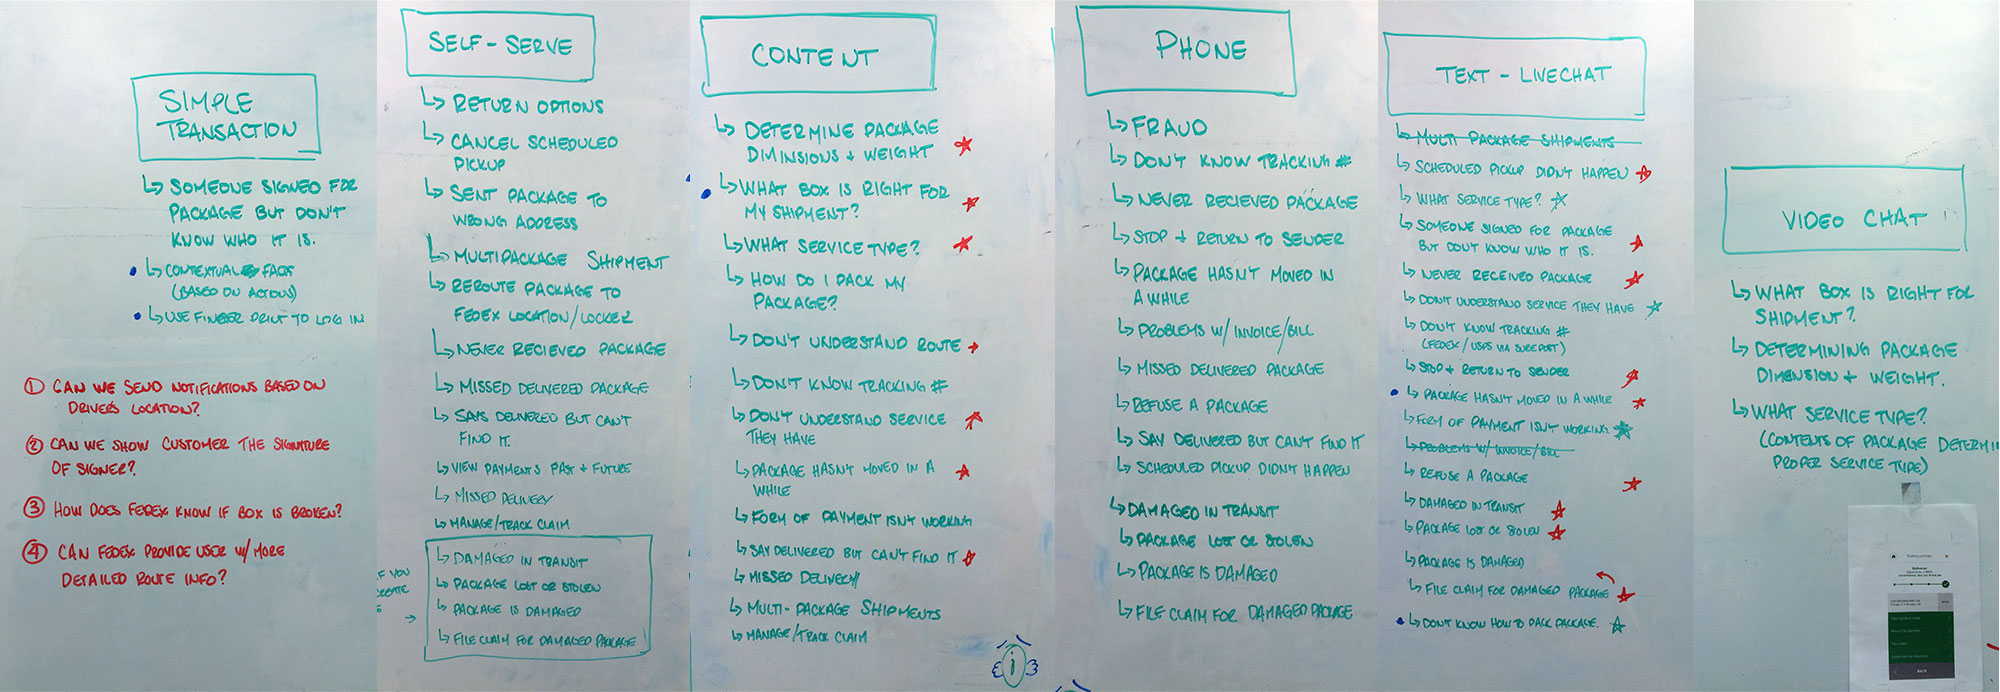 SIMPLE
TRANSACTION
SOMEONE SIGNED FOR
PACKAGE BUT DON'T
KNOW WHO IT IS.
CONTEXTUAL FAQS
(BASED ON ACTIONS)
USE FINGER PRINT TO LOG IN
① CAN WE SEND NOTIFICATIONS BASED ON
DRIVERS LOCATION?
② CAN WE SHOW CUSTOMER THE SIGNATURE
OF SIGNER?
③ HOW DOES FEDEX KNOW IF BOX IS BROKEN?
④ CAN FEDEX PROVIDE USER W/ MORE
DETAILED ROUTE INFO?
SELF-SERVE
RETURN OPTIONS
CANCEL SCHEDULED
PICKUP
SENT PACKAGE TO
WRONG ADDRESS
MULTIPACKAGE SHIPMENT
REROUTE PACKAGE TO
FEDEX LOCATION/LOCKER
NEVER RECIEVED PACKAGE
MISSED DELIVERED PACKAGE
SAYS DELIVERED BUT CAN'T
FIND IT.
VIEW PAYMENTS PAST + FUTURE
MISSED DELIVERY
MANAGE/TRACK CLAIM
DAMAGED IN TRANSIT
PACKAGE LOST OR STOLEN
PACKAGE IS DAMAGED
FILE CLAIM FOR DAMAGED PACKAGE
YOU
CONTENT
DETERMINE PACKAGE
DIMINSIONS + WEIGHT
WHAT BOX IS RIGHT FOR
MY SHIPMENT?
WHAT SERVICE TYPE?
HOW DO I PACK MY
PACKAGE?
DON'T UNDERSTAND ROUTE
DON'T KNOW TRACKING #
DON'T UNDERSTAND SERVICE
THEY HAVE
PACKAGE HASN'T MOVED IN A
WHILE
FORM OF PAYMENT ISN'T WORKING
SAY DELIVERED BUT CAN'T FIND IT
MISSED DELIVERY
MULTI-PACKAGE SHIPMENTS
MANAGE/TRACK CLAIM
i
PHONE
FRAUD
DON'T KNOW TRACKING #
NEVER RECIEVED PACKAGE
STOP + RETURN TO SENDER
PACKAGE HASN'T MOVED IN
A WHILE
PROBLEMS W/ INVOICE/BILL
MISSED DELIVERED PACKAGE
REFUSE A PACKAGE
SAY DELIVERED BUT CAN'T FIND IT
SCHEDULED PICKUP DIDN'T HAPPEN
DAMAGED IN TRANSIT
PACKAGE LOST OR STOLEN
PACKAGE IS DAMAGED
FILE CLAIM FOR DAMAGED PACKAGE
TEXT - LIVECHAT
MULTI PACKAGE SHIPMENTS
SCHEDULED PICKUP DIDN'T HAPPEN
WHAT SERVICE TYPE?
SOMEONE SIGNED FOR PACKAGE
BUT DON'T KNOW WHO IT IS.
NEVER RECEIVED PACKAGE
DON'T UNDERSTAND SERVICE THEY HAVE
DON'T KNOW TRACKING #
(FEDEX/USPS VIA SUREPOST)
STOP + RETURN TO SENDER
PACKAGE HASN'T MOVED IN A WHILE
FORM OF PAYMENT ISN'T WORKING.
PROBLEMS W/ INVOICE/BILL
REFUSE A PACKAGE
DAMAGED IN TRANSIT
PACKAGE LOST OR STOLEN
PACKAGE IS DAMAGED
FILE CLAIM FOR DAMAGED PACKAGE
DON'T KNOW HOW TO PACK PACKAGE.
VIDEO CHAT
WHAT BOX IS RIGHT FOR
SHIPMENT?
DETERMINING PACKAGE
DIMENSION + WEIGHT.
WHAT SERVICE TYPE?
(CONTENTS OF PACKAGE DETERMIN
PROPER SERVICE TYPE)
Delivered
BACK